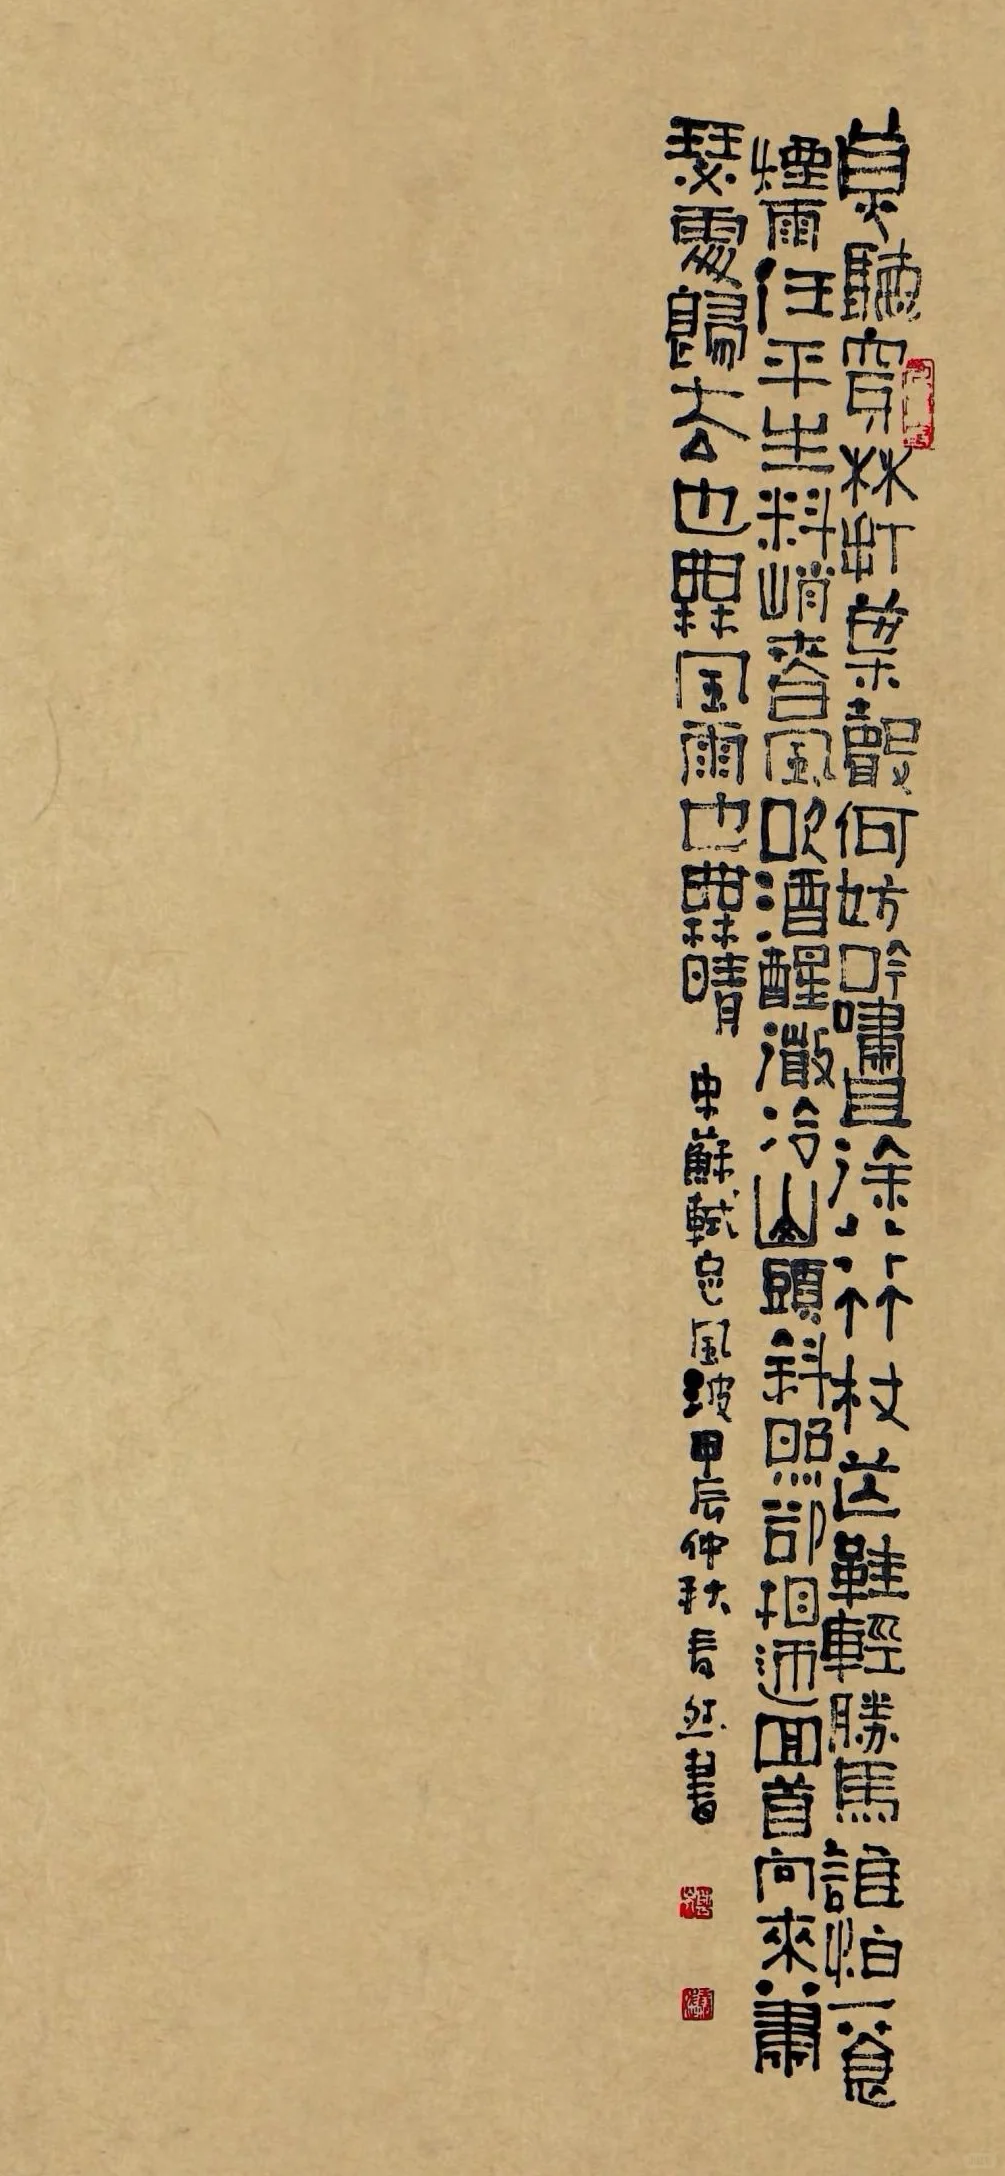 莫聽穿林打葉聲何妨吟嘯且徐行竹杖芒鞋輕勝馬誰怕一蓑
煙雨任平生料峭春風吹酒醒微冷山頭斜照卻相迎回首向來蕭
瑟處歸去也無風雨也無晴
宋蘇軾定風波甲辰仲秋 然書